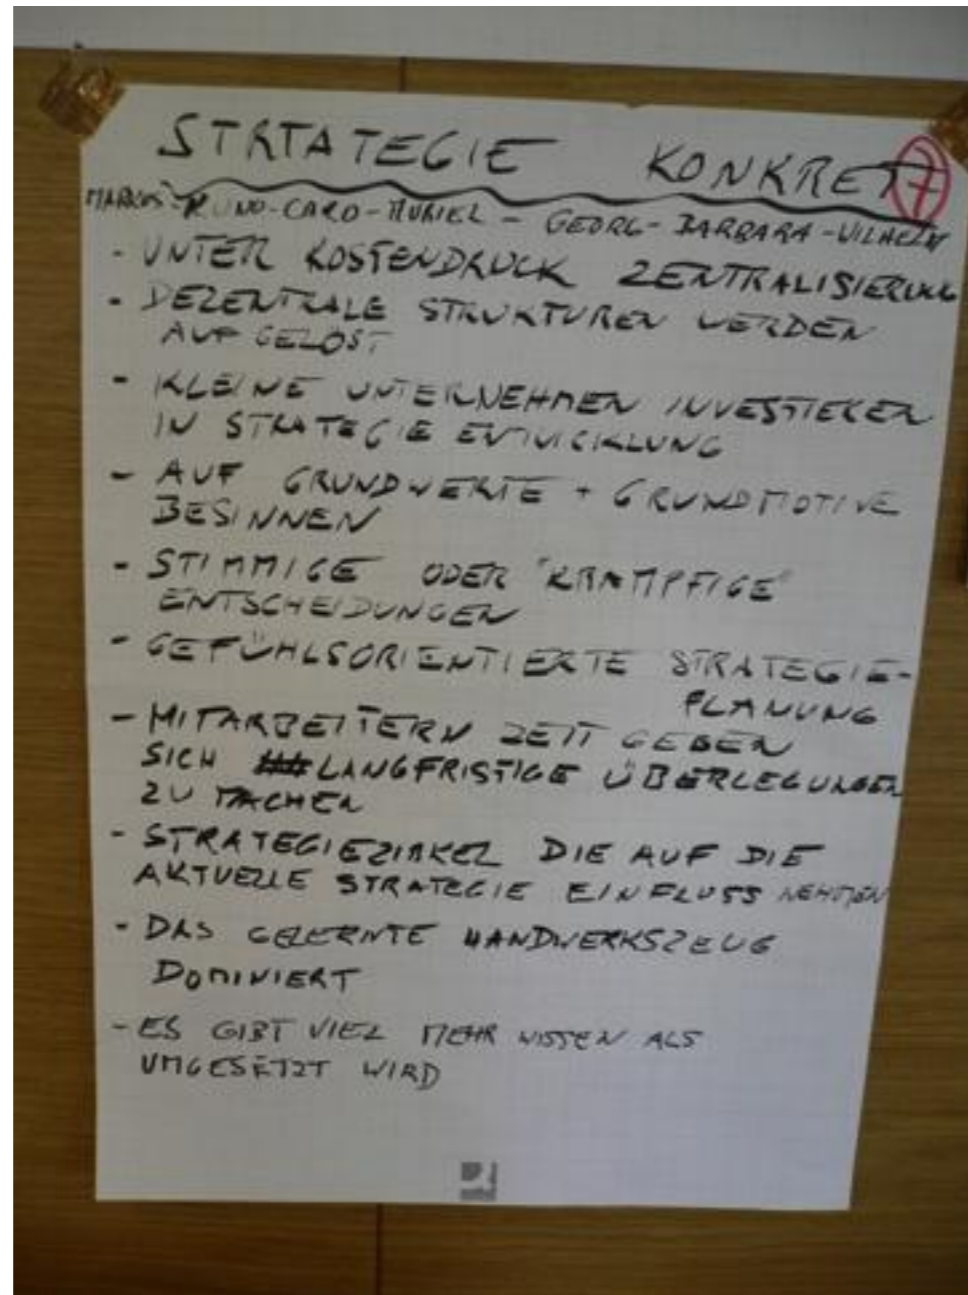 STRTATEGIE KONKRET
7
MARKUS - KUNO - CARO - MURIEL - GEORG - BARBARA - WILHELM
- UNTER KOSTENDRUCK ZENTRALISIERUNG
- DEZENTRALE STRUKTUREN WERDEN
AUFGELÖST
- KLEINE UNTERNEHMEN INVESTIEREN
IN STRATEGIE ENTWICKLUNG
- AUF GRUNDWERTE + GRUNDMOTIVE
BESINNEN
- STIMMIGE ODER "KRAMPFIGE"
ENTSCHEIDUNGEN
- GEFÜHLSORIENTIERTE STRATEGIE-
PLANUNG
- MITARBEITERN ZEIT GEBEN
SICH LANGFRISTIGE ÜBERLEGUNGEN
ZU MACHEN
- STRATEGIEZIRKEL DIE AUF DIE
AKTUELLE STRATEGIE EINFLUSS NEHMEN
- DAS GELERNTE HANDWERKSZEUG
DOMINIERT
- ES GIBT VIEL MEHR WISSEN ALS
UMGESETZT WIRD